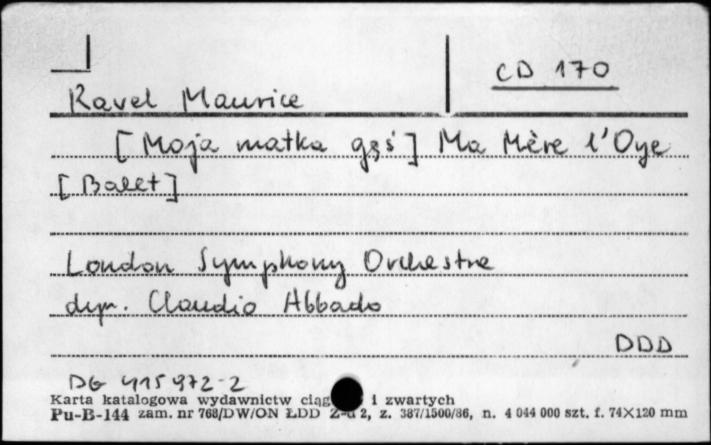 CD 170
Ravel Maurice
[Moja matka gęś] Ma Mère l'Oye
[Balet]
London Symphony Orchestra
dyr. Claudio Abbado
DDD
DG 415 972-2
Karta katalogowa wydawnictw ciąg i zwartych
Pu-B-144 zam. nr 768/DW/ON ŁDD Z-d 2, z. 387/1500/86, n. 4 044 000 szt. f. 74×120 mm